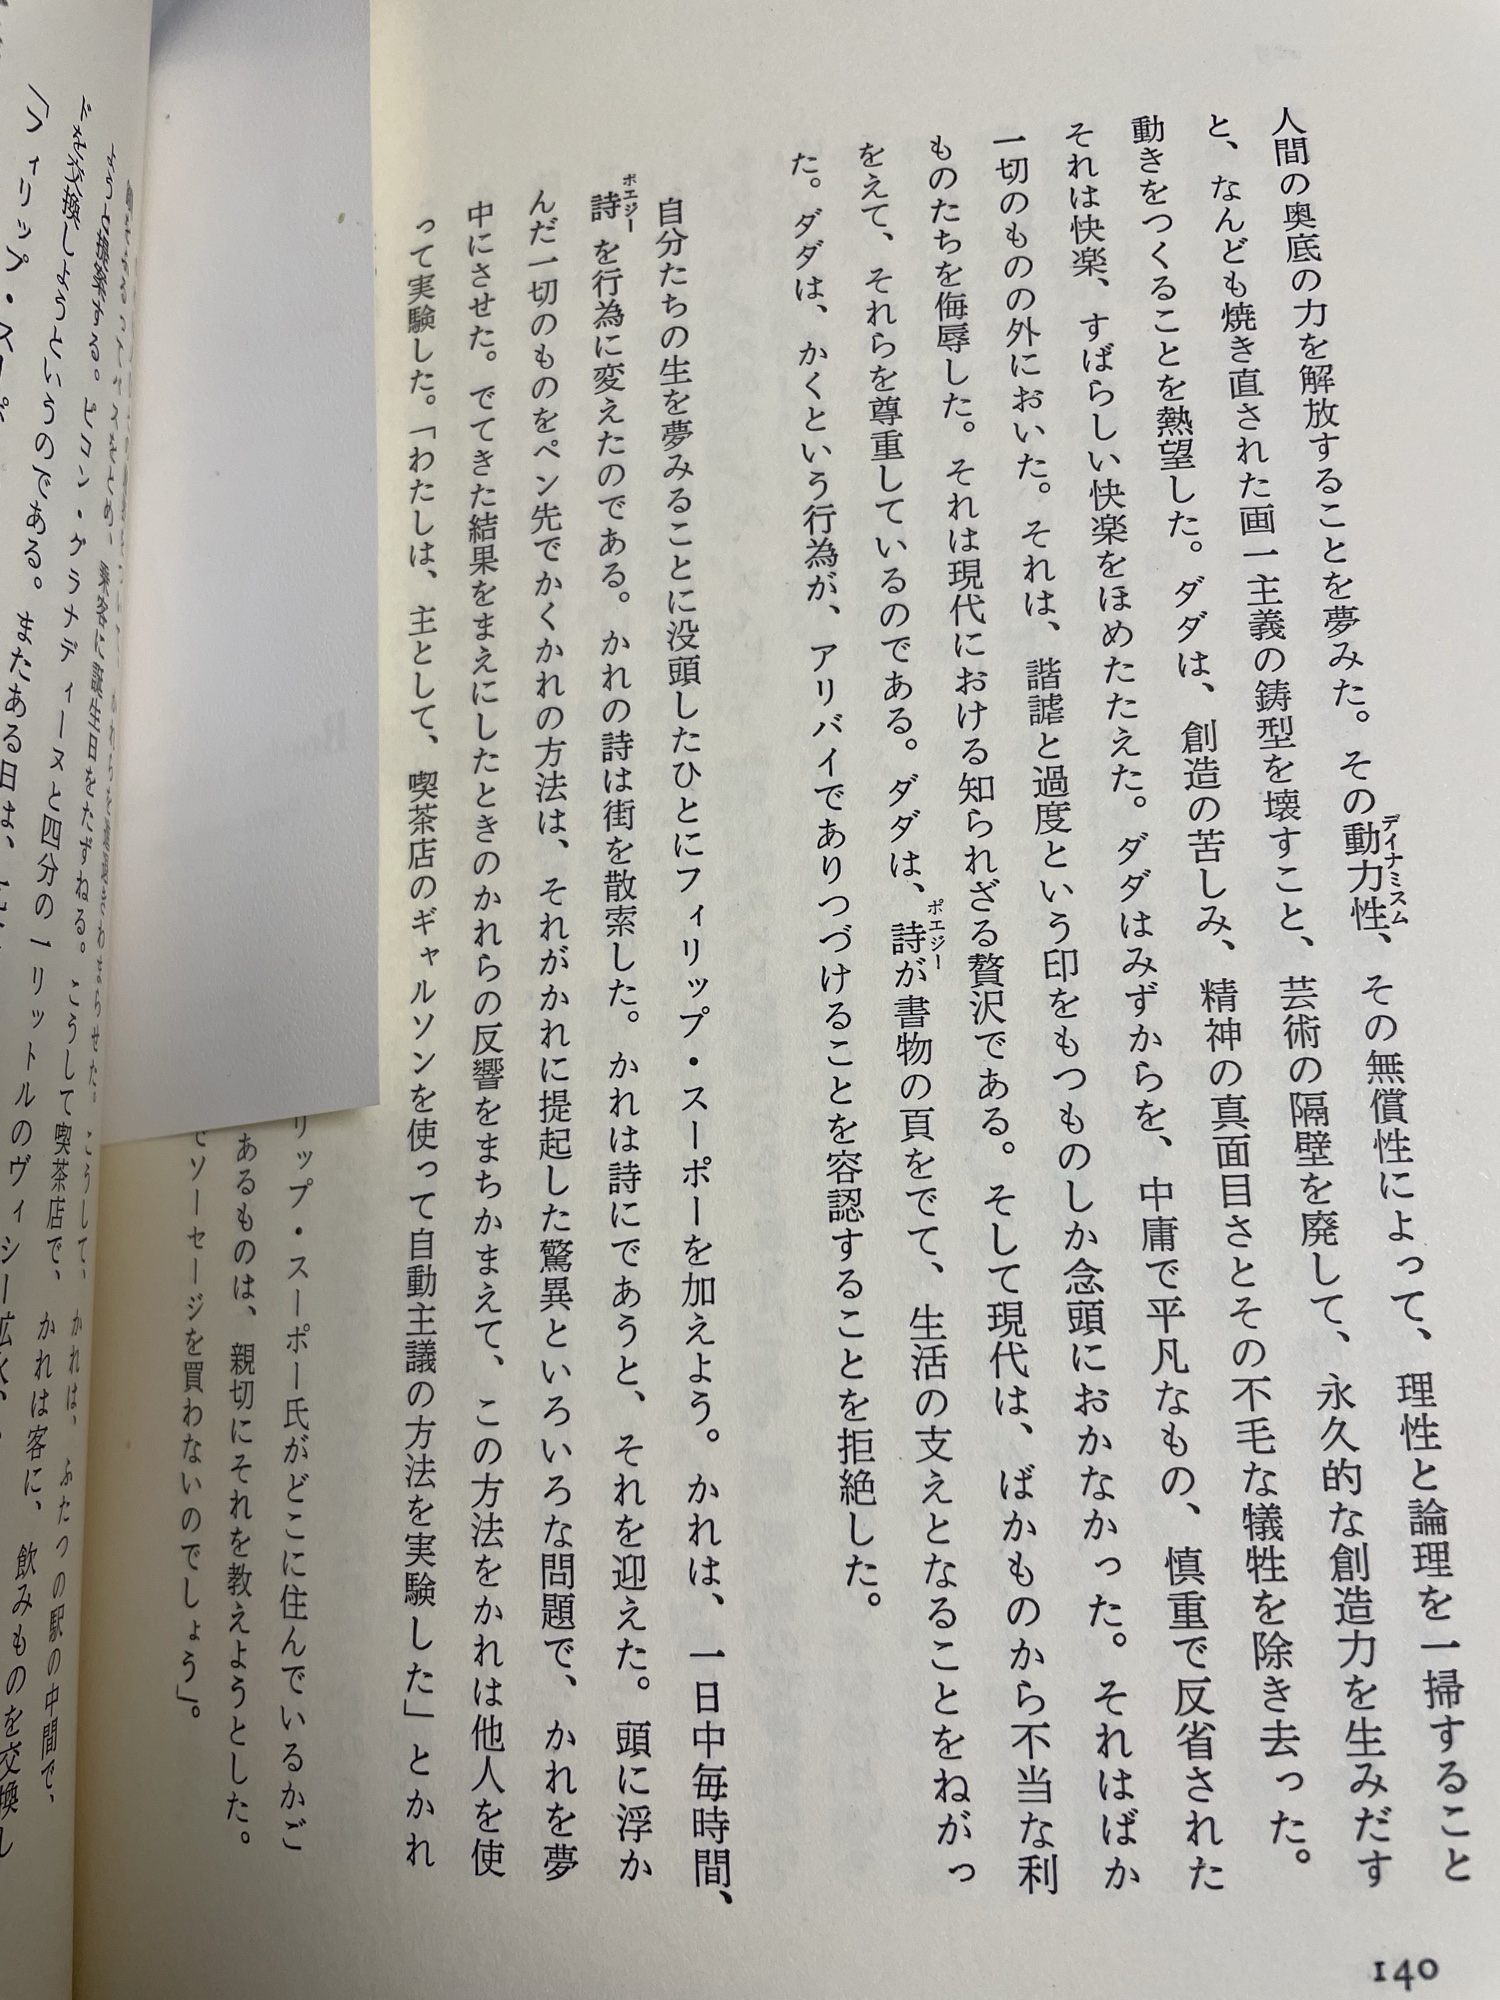 人間の奥底の力を解放することを夢みた。その動力性、その無償性によって、理性と論理を一掃すること
ディナミスム
と、なんども焼き直された画一主義の鋳型を壊すこと、芸術の隔壁を廃して、永久的な創造力を生みだす
動きをつくることを熱望した。ダダは、創造の苦しみ、精神の真面目さとその不毛な犠牲を除き去った。
それは快楽、すばらしい快楽をほめたたえた。ダダはみずからを、中庸で平凡なもの、慎重で反省された
一切のものの外においた。それは、諧謔と過度という印をもつものしか念頭におかなかった。それはばか
ものたちを侮辱した。それは現代における知られざる贅沢である。そして現代は、ばかものから不当な利
をえて、それらを尊重しているのである。ダダは、詩が書物の頁をでて、生活の支えとなることをねがっ
ポエジー
た。ダダは、かくという行為が、アリバイでありつづけることを容認することを拒絶した。
自分たちの生を夢みることに没頭したひとにフィリップ・スーポーを加えよう。かれは、一日中毎時間、
詩を行為に変えたのである。かれの詩は街を散索した。かれは詩にであうと、それを迎えた。頭に浮か
ポエジー
んだ一切のものをペン先でかくかれの方法は、それがかれに提起した驚異といろいろな問題で、かれを夢
中にさせた。でてきた結果をまえにしたときのかれらの反響をまちかまえて、この方法をかれは他人を使
って実験した。「わたしは、主として、喫茶店のギャルソンを使って自動主議の方法を実験した」とかれ
リップ・スーポー氏がどこに住んでいるかご
あるものは、親切にそれを教えようとした。
でソーセージを買わないのでしょう」。
ようと提案する。ピコン・グラナディーヌと四分の一リットルのヴィシー鉱水、
ドを交換しようというのである。またある日は、
140